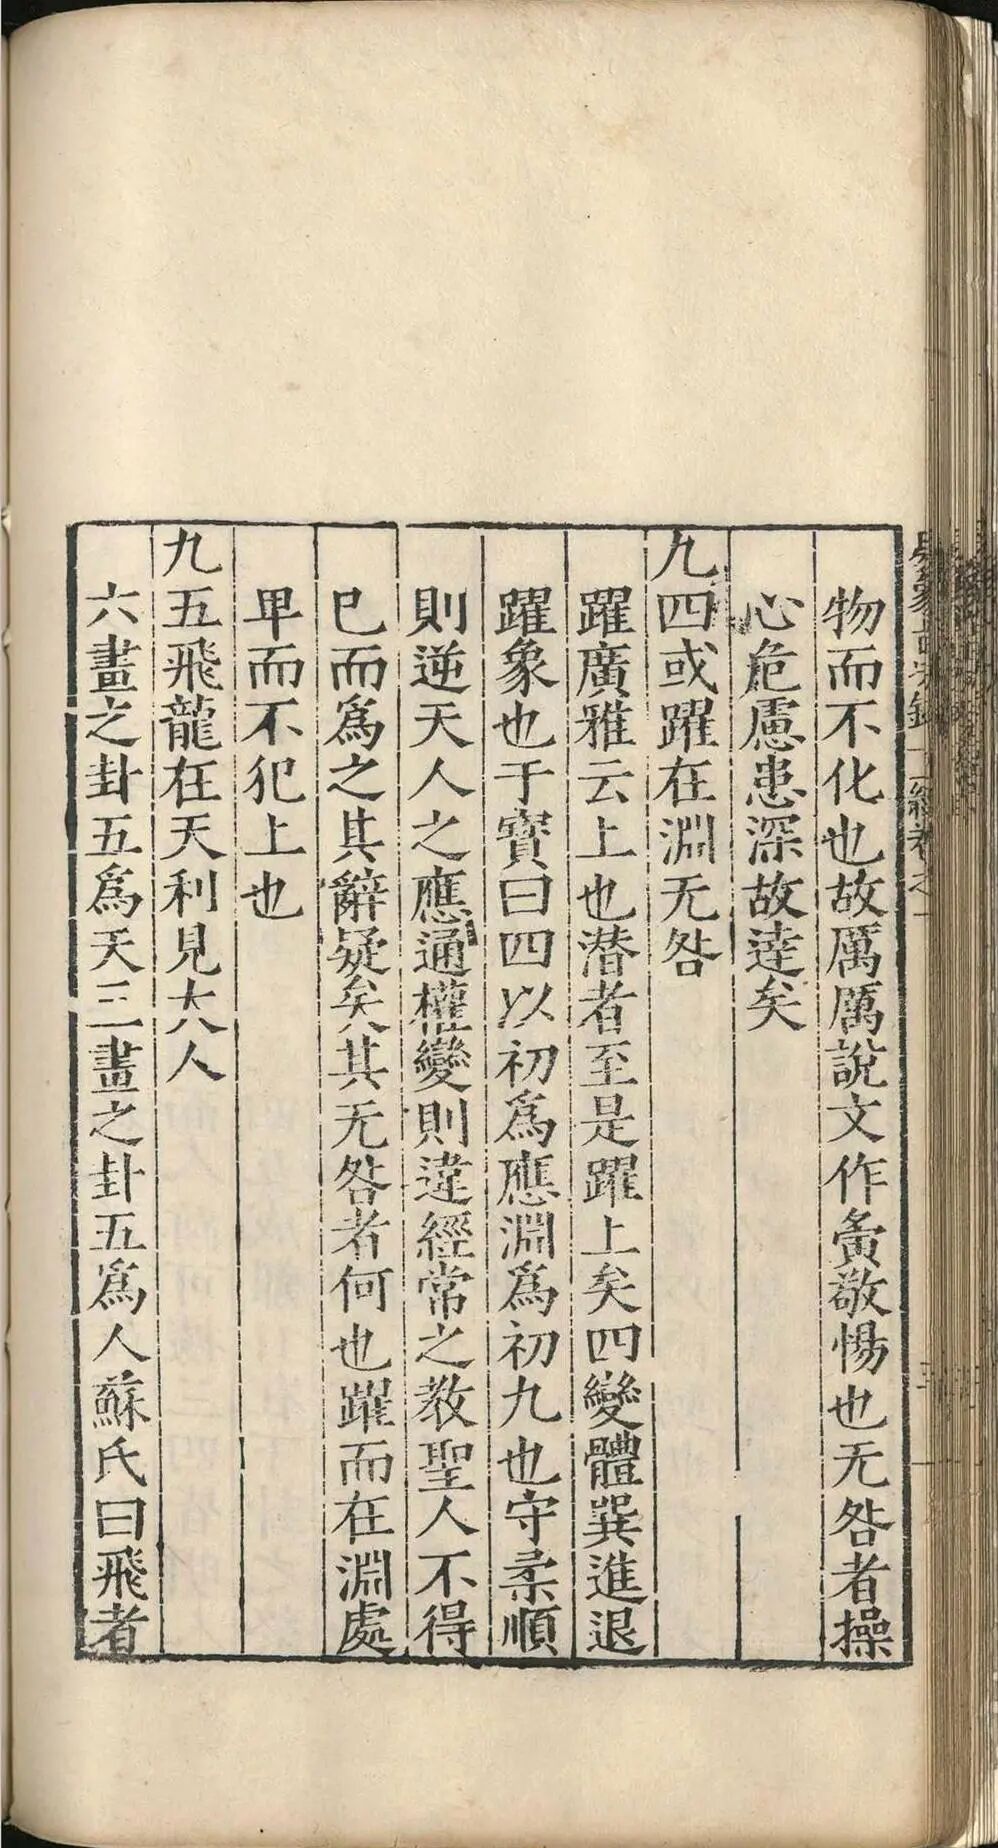 物而不化也故厲厲說文作夤敬惕也无咎者操
心危慮患深故達矣
九四或躍在淵无咎
躍廣雅云上也潛者至是躍上矣四變體巽進退
躍象也于寶曰四以初爲應淵爲初九也守柔順
則逆天人之應通權變則違經常之教聖人不得
已而爲之其辭疑矣其无咎者何也躍而在淵處
卑而不犯上也
九五飛龍在天利見大人
六畫之卦五爲天三畫之卦五爲人蘇氏曰飛者